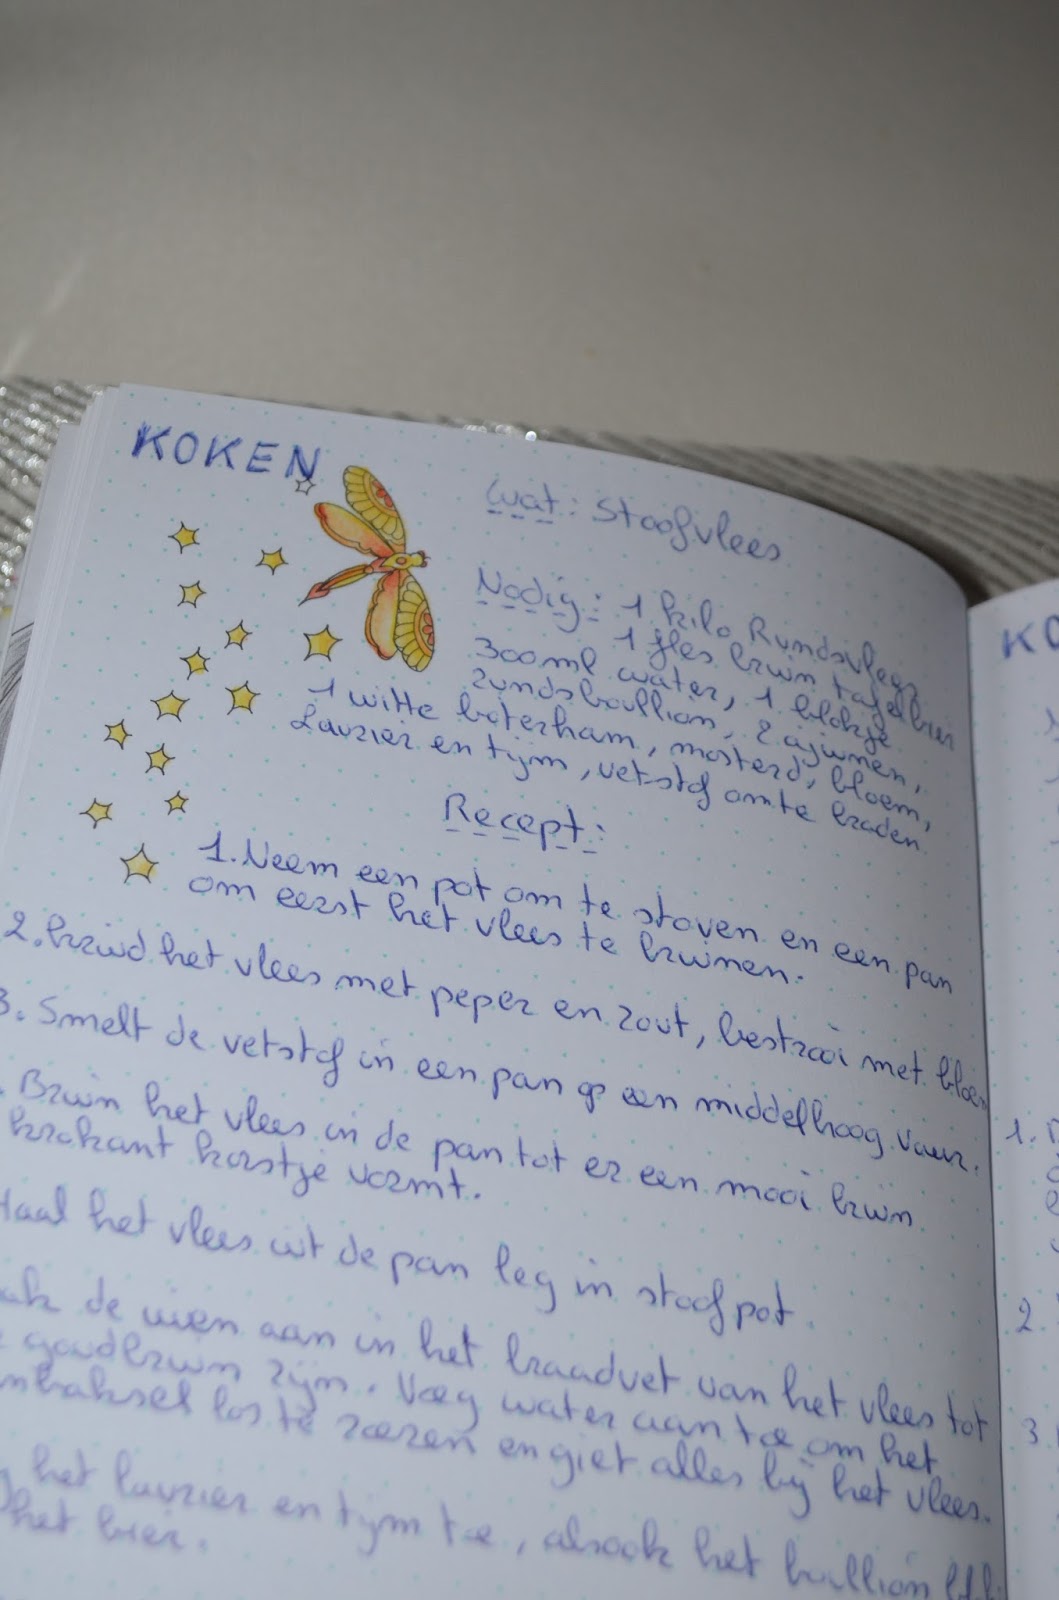 KOKEN
Wat: Stoofvlees
Nodig: 1 kilo Rundsvlees
1 fles bruin tafelbier
300ml water, 1 blokje
rundsboullion, 2 ajuinen,
1 witte boterham, mosterd, bloem,
Laurier en tijm, vetstof om te braden
Recept:
1. Neem een pot om te stoven en een pan
om eerst het vlees te bruinen.
2. kruid het vlees met peper en zout, bestrooi met bloem
3. Smelt de vetstof in een pan op een middelhoog vuur.
Bruin het vlees in de pan tot er een mooi bruin
krokant korstje vormt.
Haal het vlees uit de pan leg in stoofpot.
de uien aan in het braadvet van het vlees tot
goudbruin zijn. Voeg water aan toe om het
los te roeren en giet alles bij het vlees.
het laurier en tijm toe, alsook het boullion
het bier.
KO
1.
2.
3